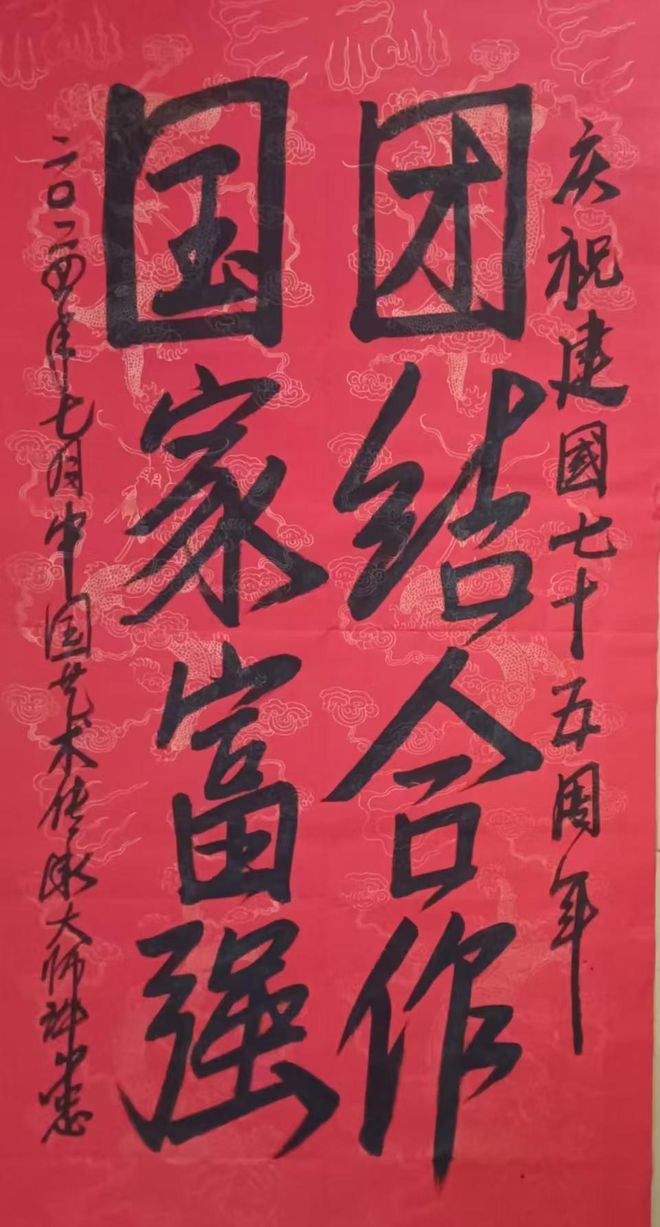 庆祝建國七十五周年
团结合作
国家富强
二〇二四年七月中国艺术传承大师许